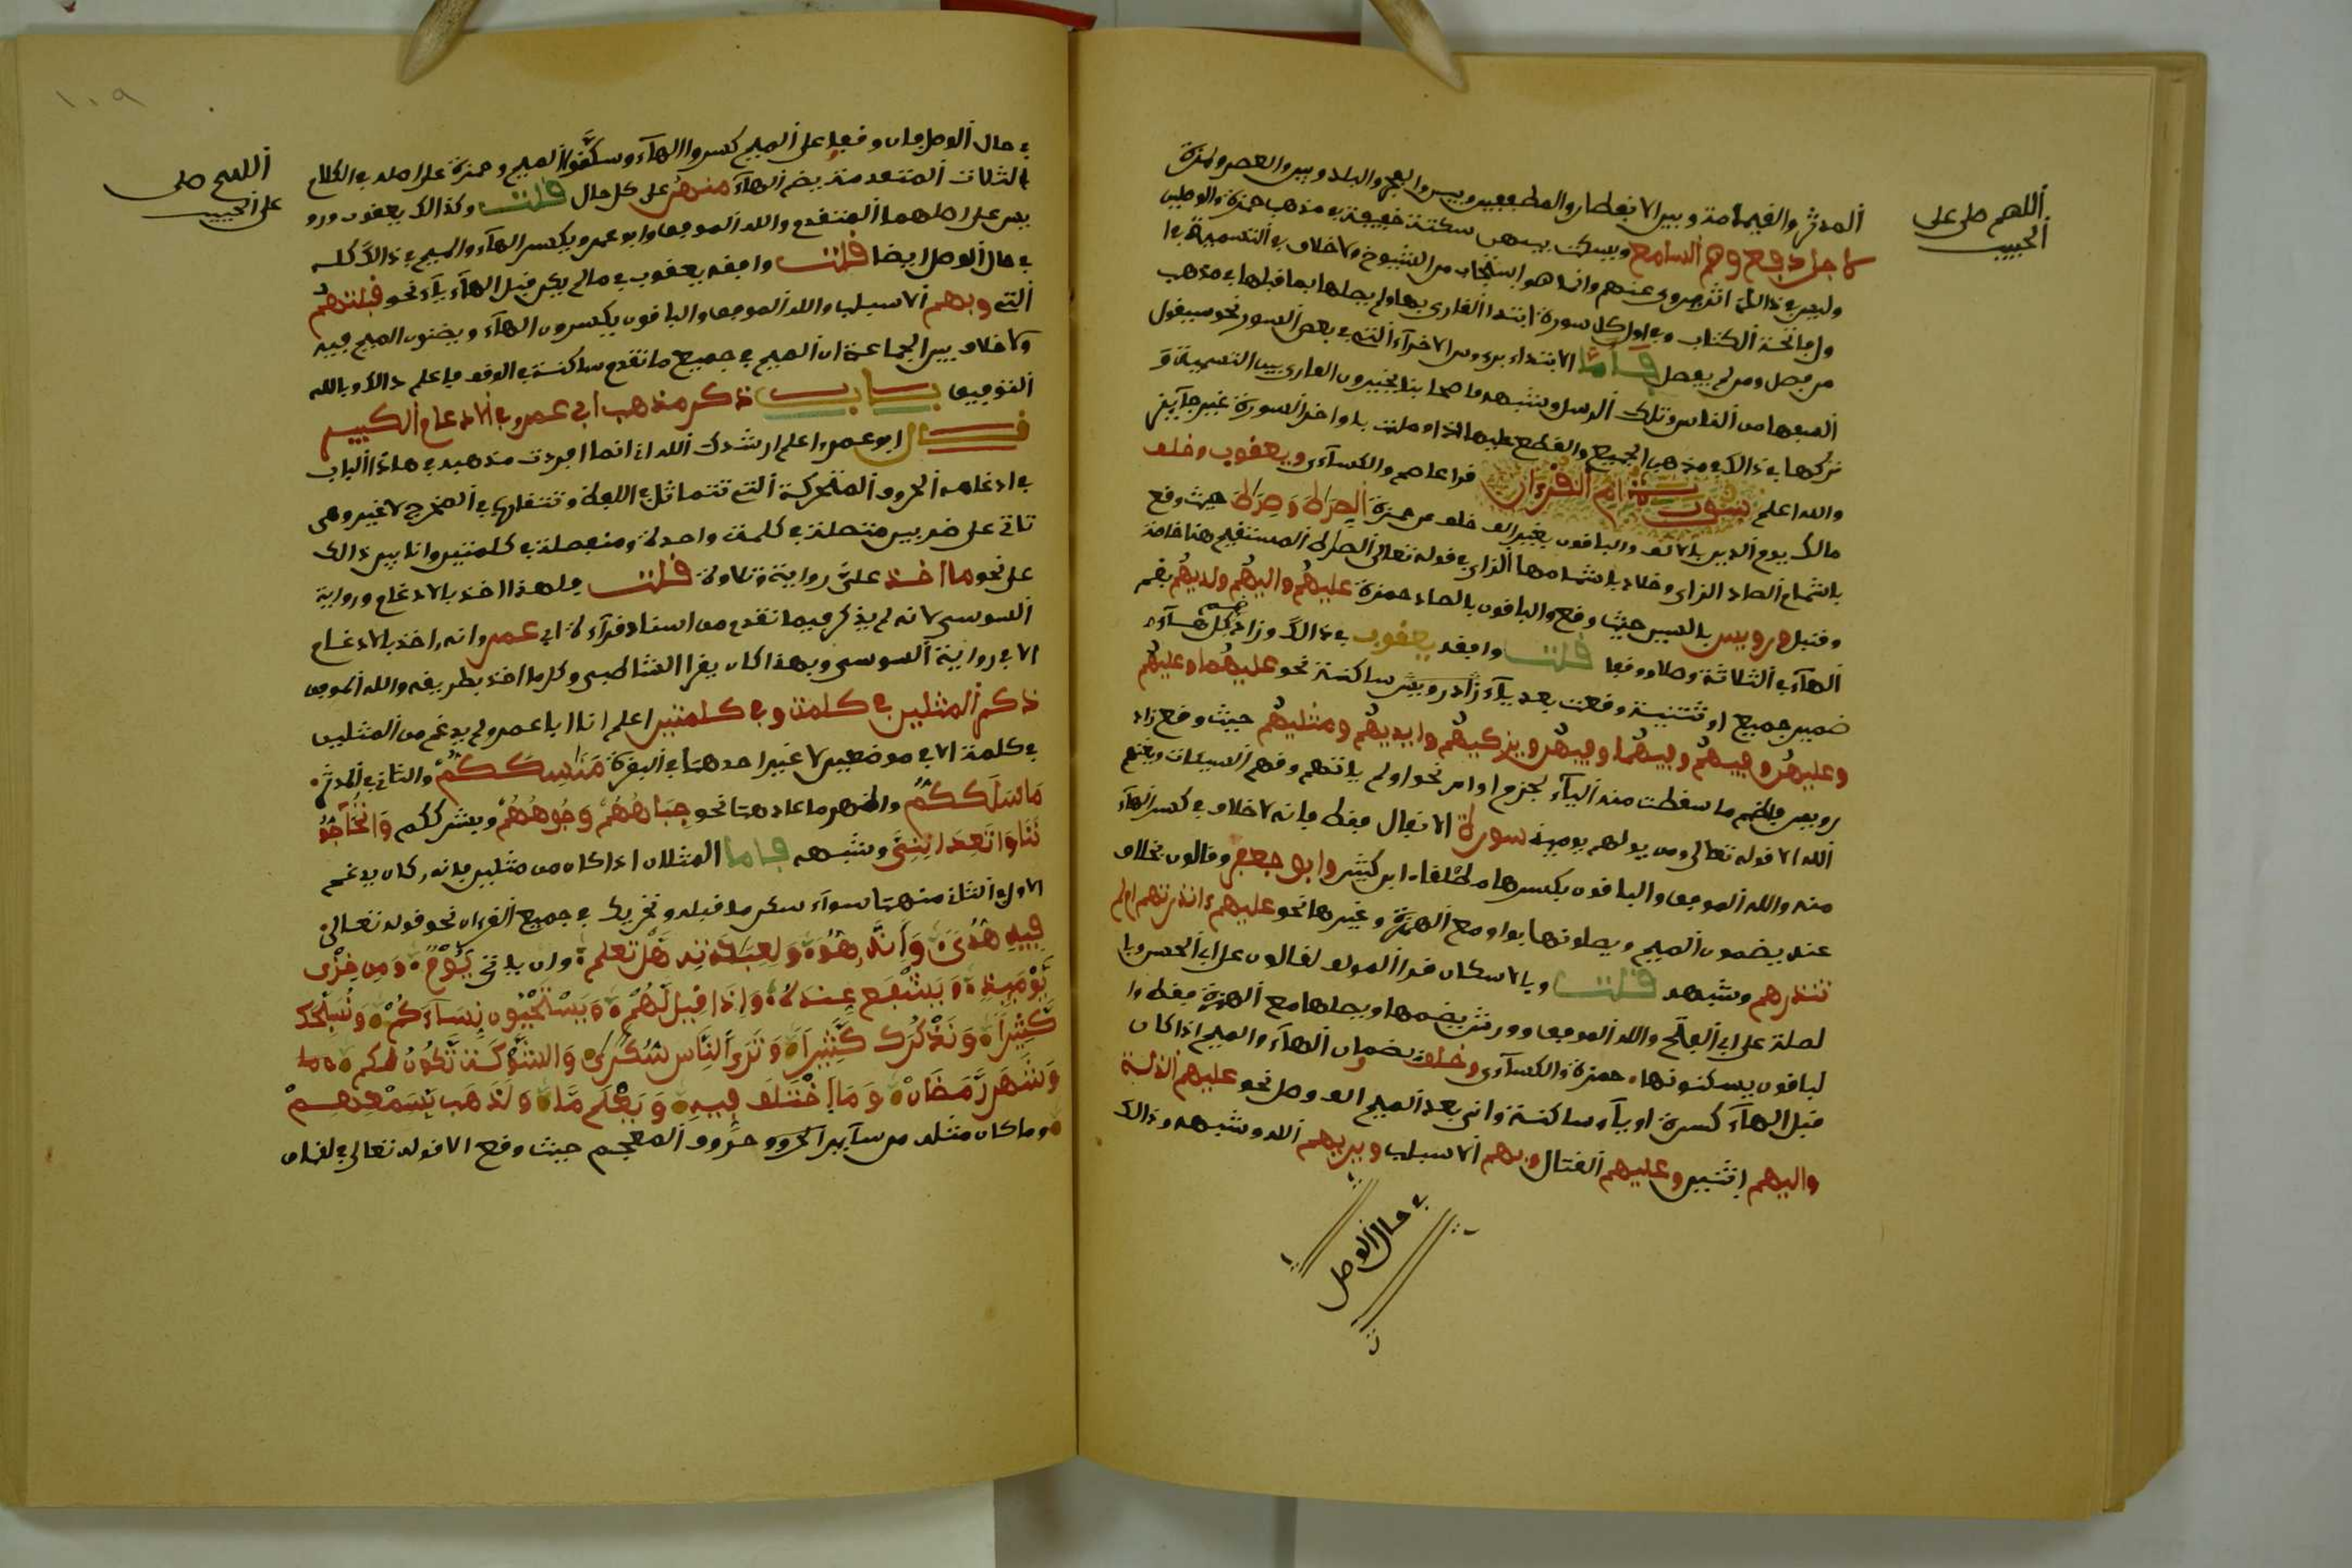 اللهم صل على
الحبيب
المدثر والقيمامة وبين الانفطار والمطففين وبين والفجر والبلد وبين والعصر ولمزة
لاجل دفع وهم السامع ويسكت بينهن سكتة خفيفة في مذهب حمزة والوصل
وليس في ذالك اثر يروى عنهم وانما هو استحباب من الشيوخ ولا خلاف في التسمية في ا
ول فاتحة الكتاب وفي اول كل سورة ابتدا القارى بها ولم يصلها بما قبلها في مذهب
من فصل ومن لم يفصل فاما الابتداء برءوس الاخرآء التي في بعض السور نحو سيقول
السفهاء من الناس وتلك الرسل وشبهه فاصحابنا يخيرون القارى بين التسمية و
تركها في ذالك في مذهب الجميع والقطع عليها اذا وصلت باواخر السورة غير جآيز
والله اعلم سورة ام القرءان قرا عاصم والكسآءى ويعقوب وخلف
مالك يوم الدين بالالف والباقون بغير الف خلف عن حمزة الصراط وصراط حيث وقع
باشمام الصاد الزاى وخلاد باشمامها الزاى في قوله تعالى الصراط المستقيم هنا خاصة
وقنبل ورويس بالسين حيث وقع والباقون بالصاد حمزة عليهم واليهم ولديهم بضم
الهآء في الثلاثة وصلا ووقفا قلت وافقه يعقوب في ذالك وزاد ضم كل هآء
ضمير جميع او تثنية وقعت بعد يآء زاد رويس ساكنة نحو عليهما وعليهم
وعليهن وفيهم وفيهما وفيهن ويزكيهم وايديهم ومثليهم حيث وقع زاد
رويس فاضم ما سقطت منه اليآء لجزم او امر نحو اولم ياتهم وقهم السيئات ويغنهم
الله الا قوله تعالى ومن يولهم يوميذ سورة الانفال فقط فانه لا خلاف في كسر الهآء
منه والله الموفق والباقون يكسرها مطلقا ابن كثير وابو جعفر وقالون بخلاف
عنه يضمون الميم ويصلونها بواو مع الهمزة وغيرها نحو عليهم ءانذرتهم ام لم
تنذرهم وشبهه قلت وبالاسكان قرا المولف لقالون على ابى الحسن وبا
لصلة على ابى الفتح والله الموفق وورش يضمها ويصلها مع الهمزة فقط وا
لباقون يسكنونها حمزة والكسآءى وخلف يضمان الهآء والميم اذا كان
قبل الهآء كسرة او يآء ساكنة واتى بعد الميم الف وصل نحو عليهم الذلة
واليهم اثنين وعليهم القتال وبهم الاسباب ويريهم الله وشبهه وذالك
في حال الوصل
١٠٩
اللهم صل
على الحبيب
في حال الوصل فان وقفوا على الميم كسروا الهآء وسكنوا الميم وحمزة على اصله في الكلام
الثلاث المتقدمة يضم الهآء منهن على كل حال قلت وكذالك يعقوب ورو
يس على اصلهما المتقدم والله الموفق وابو عمرو يكسر الهآء والميم في ذالك كله
في حال الوصل ايضا قلت وافقه يعقوب في ما لم يكن قبل الهآء يآء نحو قبلتهم
التي وبهم الاسباب والله الموفق والباقون يكسرون الهآء ويضمون الميم فيه
ولا خلاف بين الجماعة ان الميم في جميع ما تقدم ساكنة في الوقف فاعلم ذالك وبالله
التوفيق باب ذكر مذهب ابي عمرو في الادغام الكبير
قال ابو عمرو اعلم ارشدك الله انى انما افردت مذهبه في هاذا الباب
في ادغامه الحروف المتحركة التي تتماثل في اللفظ وتتقارب في المخرج لا غير وهى
تاتي على ضربين متصلة في كلمة واحدة ومنفصلة في كلمتين وانا يبين ذالك
على نحو ما اخذ على رواية وتلاوة قلت ولهذا اخذ بالادغام ورواية
السوسى لانه لم يذكر فيما تقدم من اسناد قرآءة ابى عمرو انه اخذ بالادغام
الا في رواية السوسى وبهذا كان يقرا الشاطبى وكل ما اخذ بطريقه والله الموفق
ذكر المثلين في كلمة وفي كلمتين اعلم ان ابا عمرو لم يدغم من المثلين
في كلمة الا في موضعين لا غير احدهما في البقرة مناسككم والثاني في المدثر
ما سلككم واظهر ما عداهما نحو جباههم ووجوههم وبشرككم واتحآجو
ننا واتعدانني وشبهه فاما المثلان اذا كان من مثلين فانه كان يدغم
الاول في الثاني منهما سوآء سكن ما قبله وتحرك في جميع القرءان نحو قوله تعالى
فيه هدى وانه هو ولعبادته هل تعلم وان ياتي يوم ومن خزى
يوميذ ويشفع عنده واذا قيل لهم ويستحيون نسآءكم ونسبحك
كثيرا ونذكرك كثيرا وترى الناس سكارى والشوكة تكون لكم
وشهر رمضان وما اختلف فيه ويعلم ما ولذهب بسمعهم
وما كان مثله من سآير الحروف حروف المعجم حيث وقع الا قوله تعالى في لقمان